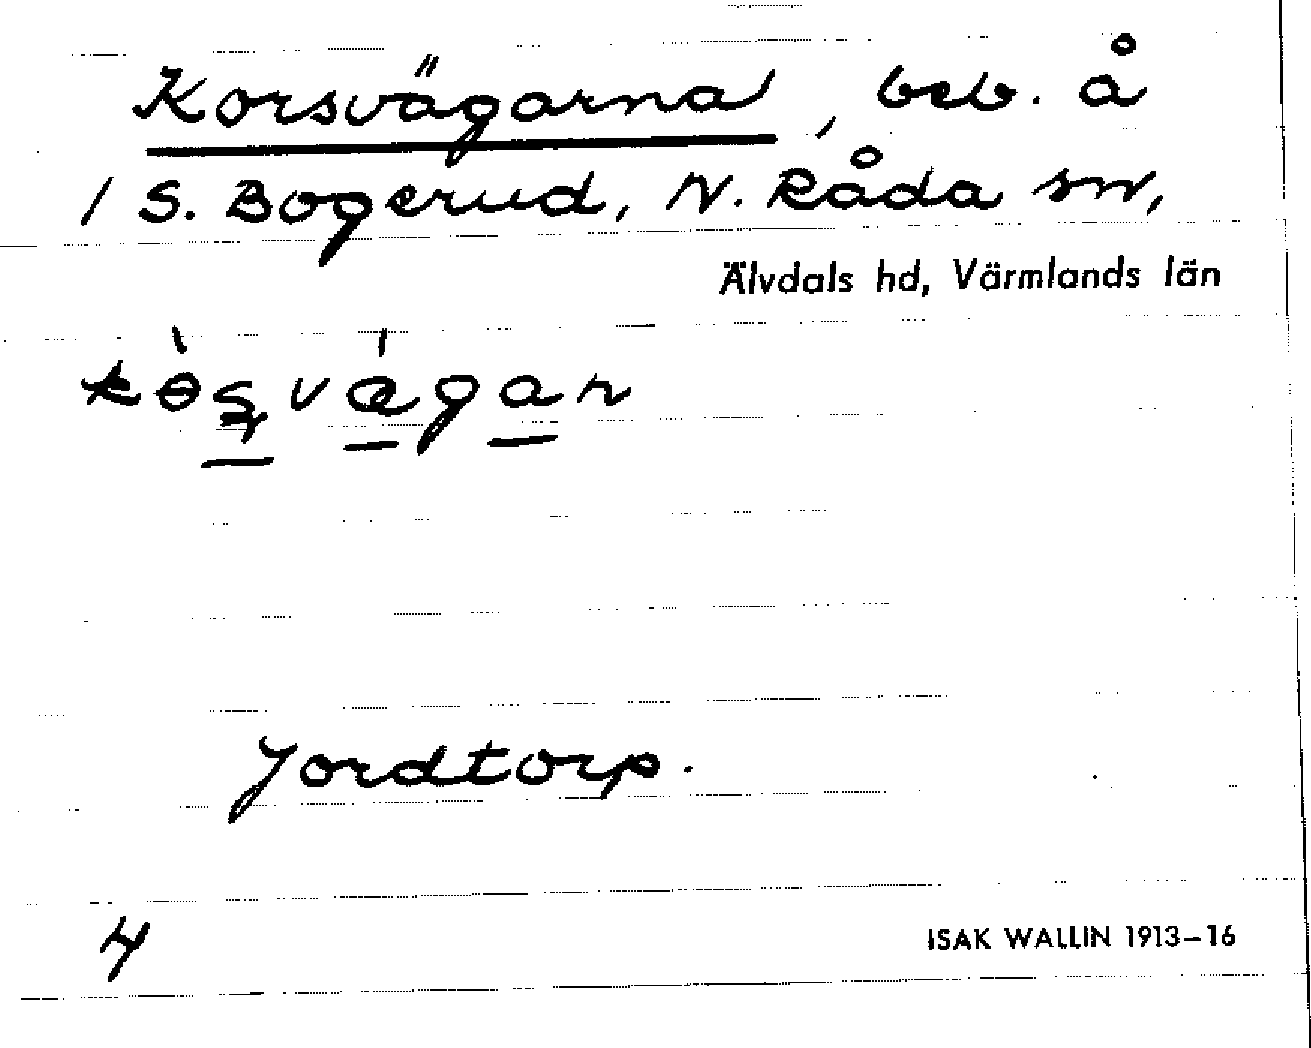 Korsvägarna, beb. å
1 S. Bogerud, N. Råda sn,
Älvdals hd, Värmlands län
Jordtorp.
4
ISAK WALLIN 1913–16